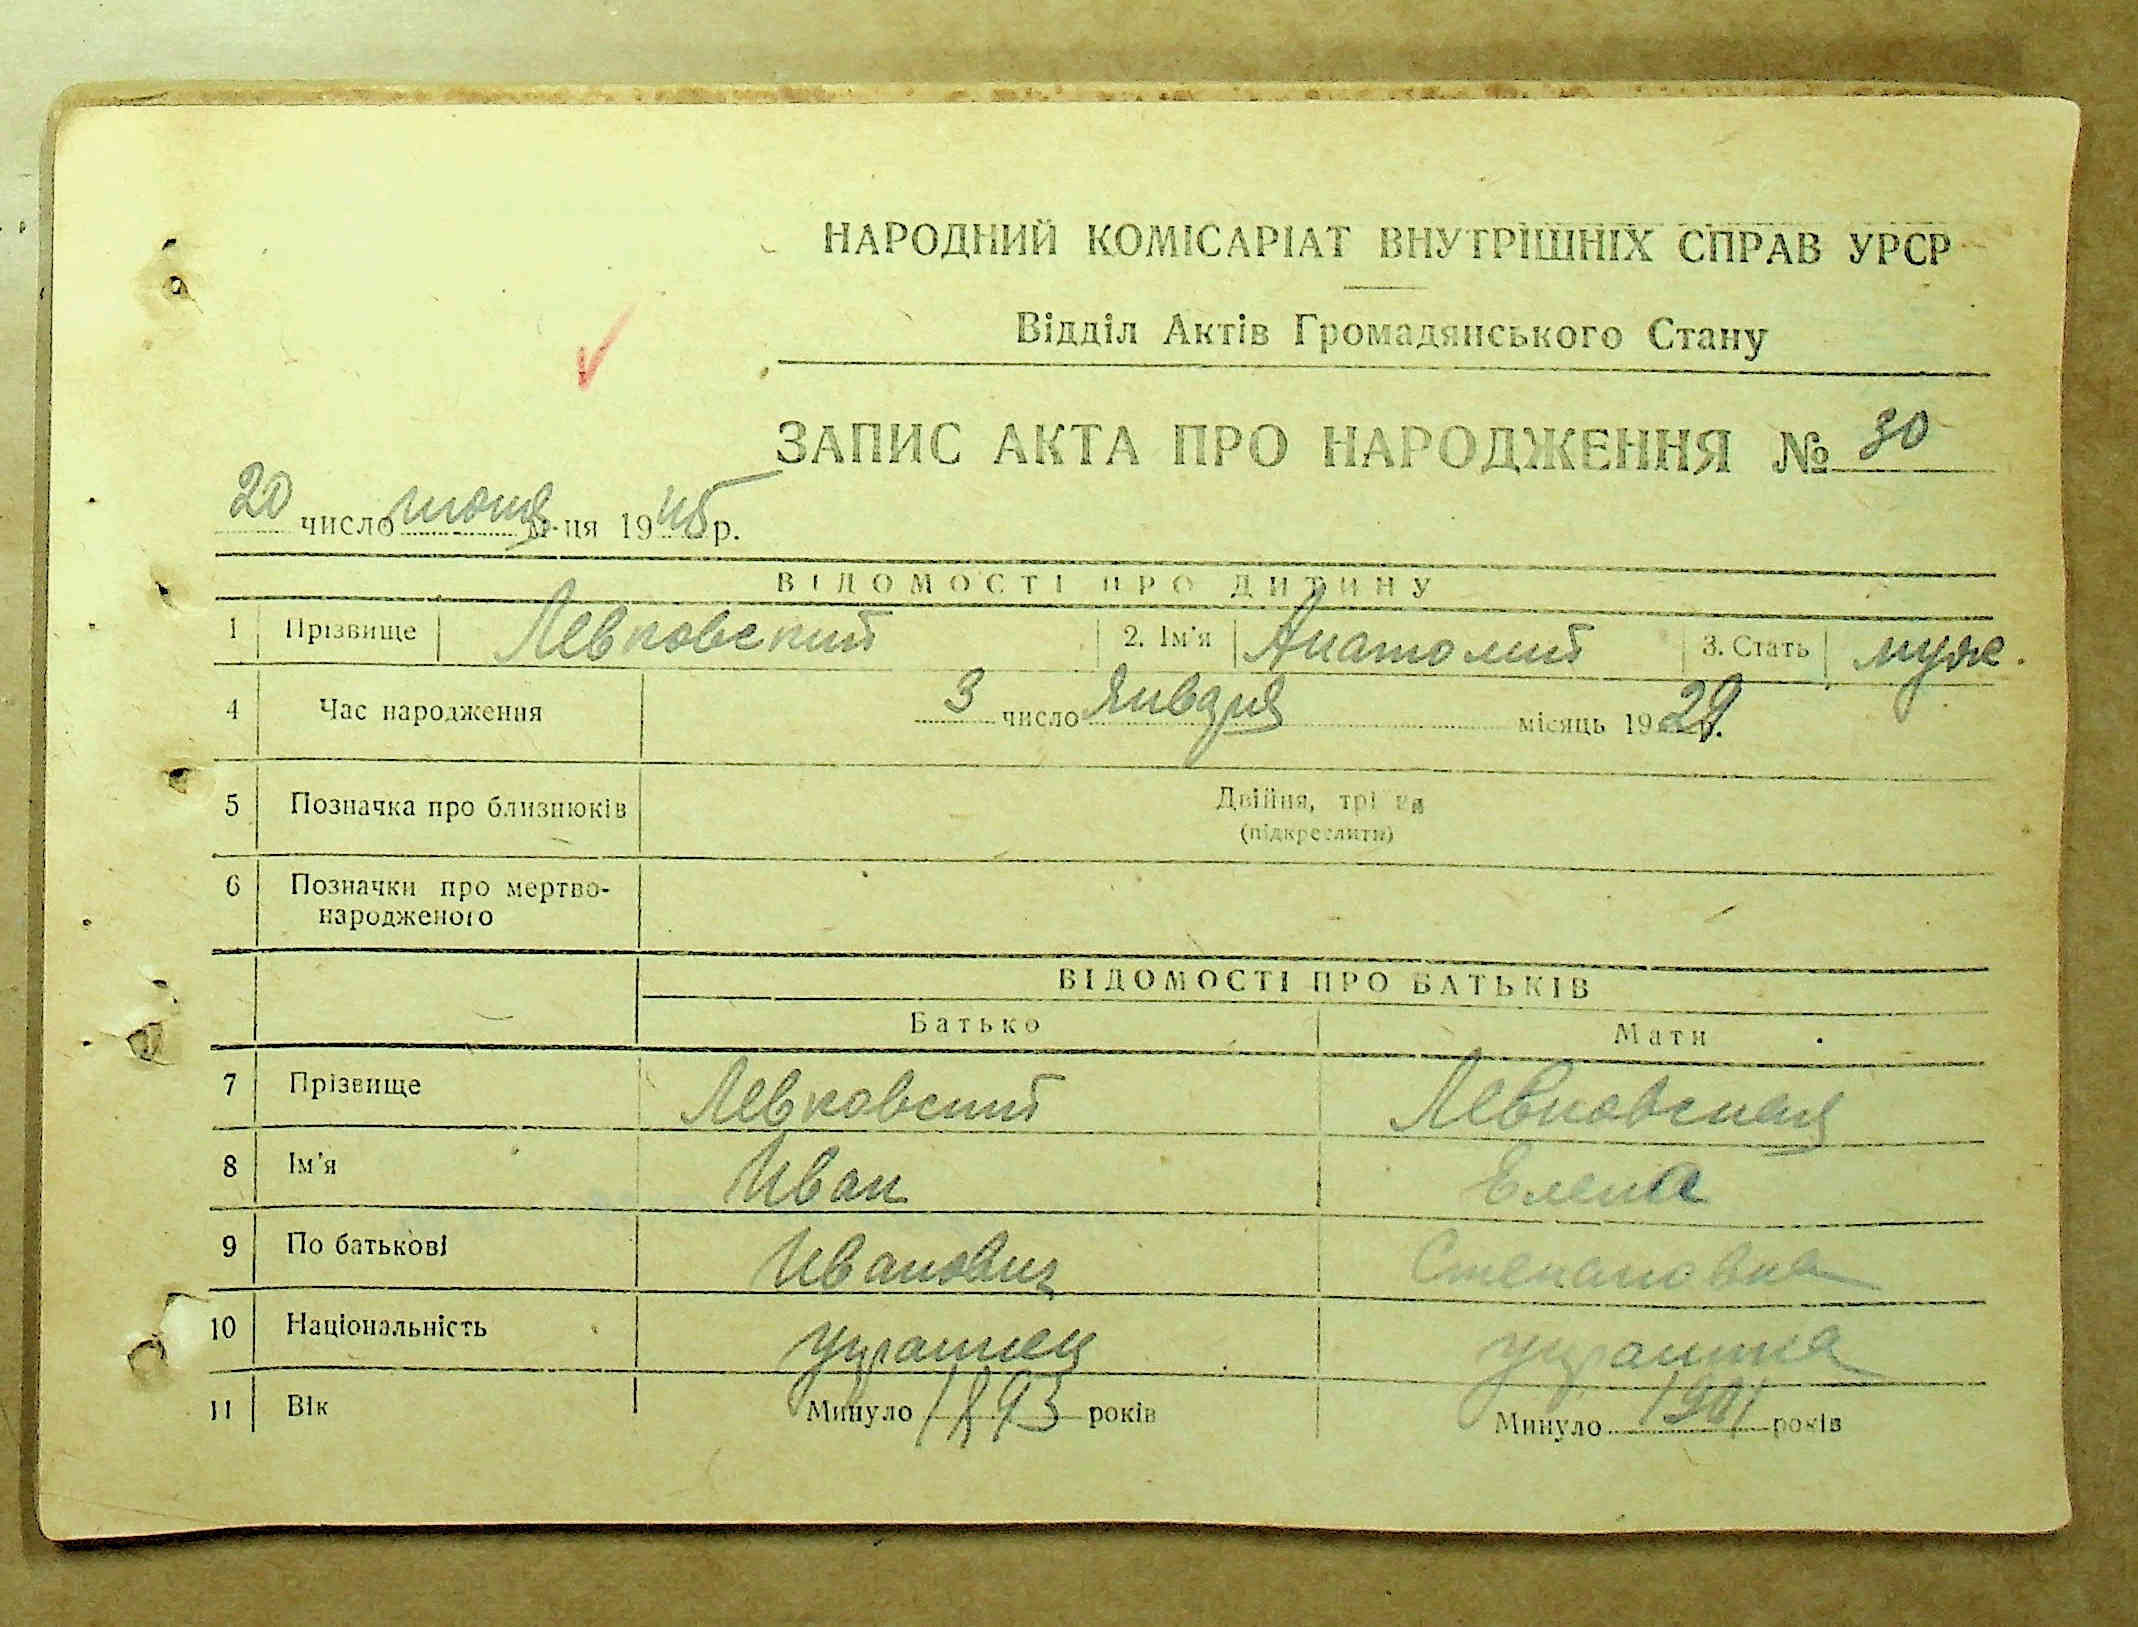 НАРОДНИЙ КОМІСАРІАТ ВНУТРІШНІХ СПРАВ УРСР
Відділ Актів Громадянського Стану
ЗАПИС АКТА ПРО НАРОДЖЕННЯ № 30
20 число июня м-ця 1945 р.
ВІДОМОСТІ ПРО ДИТИНУ
1 Прізвище Левковский 2. Ім'я Анатолий 3. Стать муж.
4 Час народження 3 число Января місяць 1929 р.
5 Позначка про близнюків Двійня, трійня
(підкреслити)
6 Позначки про мертво-
народженого
ВІДОМОСТІ ПРО БАТЬКІВ
Батько Мати
7 Прізвище Левковский Левковская
8 Ім'я Иван Елена
9 По батькові Иванович Степановна
10 Національність украинец украинка
11 Вік Минуло 1893 років Минуло 1901 років